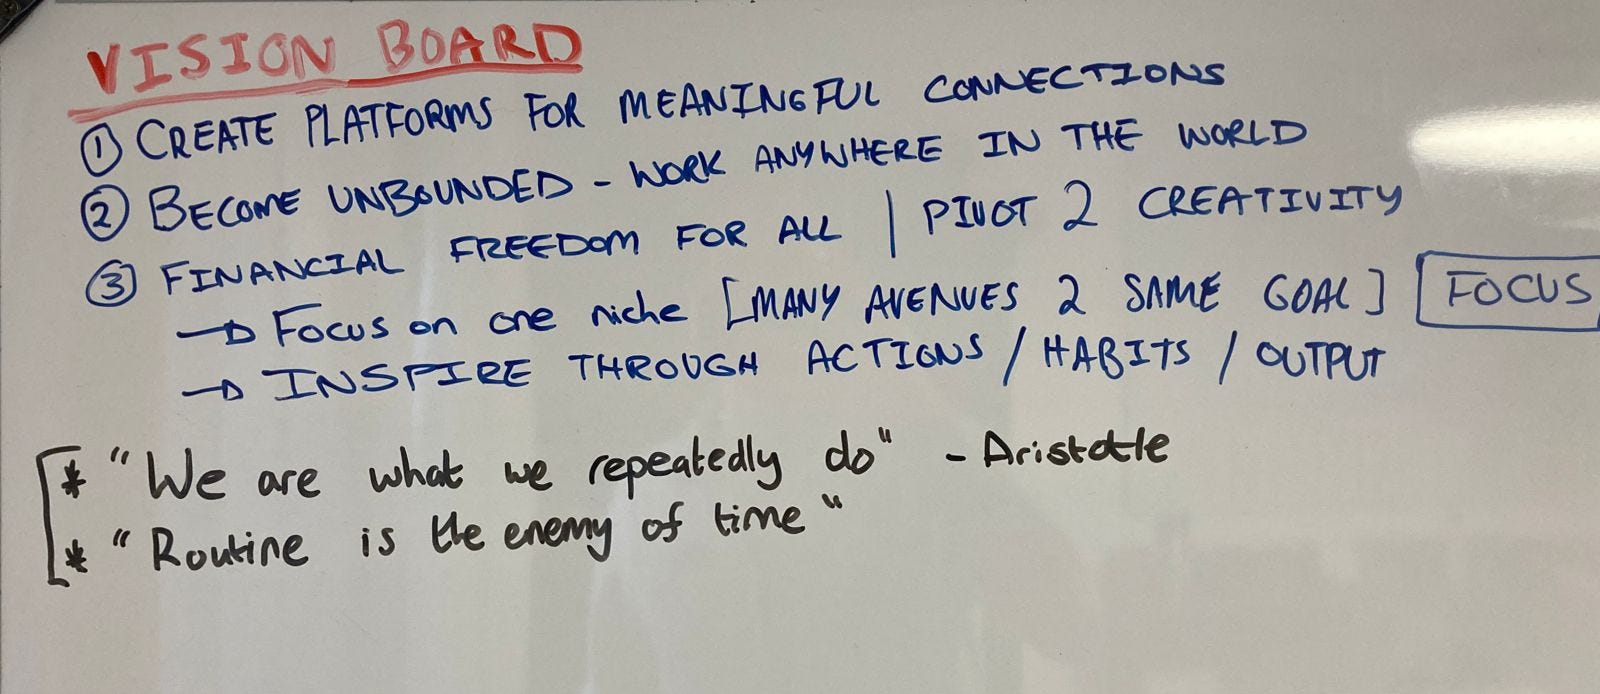 VISION BOARD
① CREATE PLATFORMS FOR MEANINGFUL CONNECTIONS
② BECOME UNBOUNDED - WORK ANYWHERE IN THE WORLD
③ FINANCIAL FREEDOM FOR ALL | PIVOT 2 CREATIVITY
→ Focus on one niche [MANY AVENUES 2 SAME GOAL] FOCUS
→ INSPIRE THROUGH ACTIONS / HABITS / OUTPUT
* "We are what we repeatedly do" - Aristotle
* "Routine is the enemy of time"